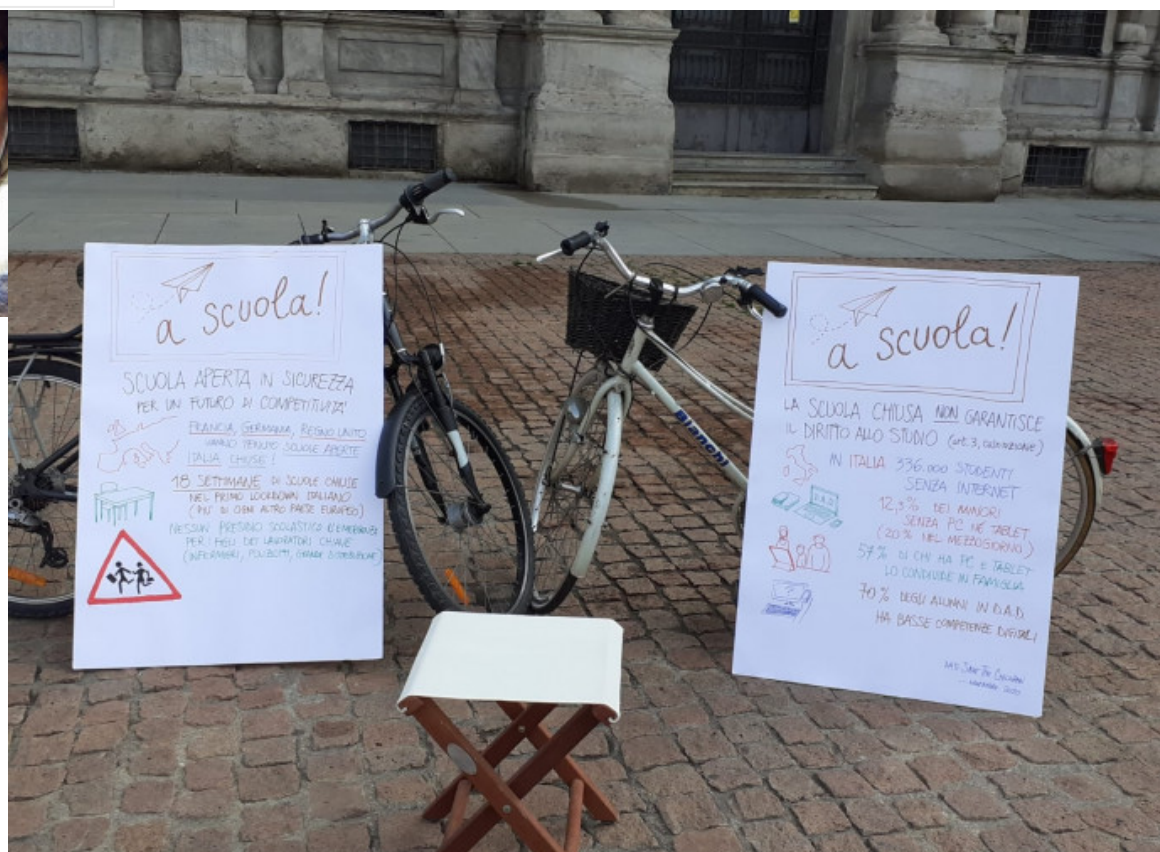 a scuola!
SCUOLA APERTA IN SICUREZZA
PER UN FUTURO DI COMPETITIVITA'
FRANCIA, GERMANIA, REGNO UNITO
HANNO TENUTO SCUOLE APERTE
ITALIA CHIUSE!
18 SETTIMANE DI SCUOLE CHIUSE
NEL PRIMO LOCKDOWN ITALIANO
(PIU' DI OGNI ALTRO PAESE EUROPEO)
NESSUN PRESIDIO SCOLASTICO D'EMERGENZA
PER I FIGLI DEI LAVORATORI CHIAVE
(INFERMIERI, POLIZIOTTI, GRANDE DISTRIBUZIONE)
Bianchi
a scuola!
LA SCUOLA CHIUSA NON GARANTISCE
IL DIRITTO ALLO STUDIO (art. 3, costituzione)
IN ITALIA 336.000 STUDENTI
SENZA INTERNET
12,3% DEI MINORI
SENZA PC NÉ TABLET
(20% NEL MEZZOGIORNO)
57% DI CHI HA PC E TABLET
LO CONDIVIDE IN FAMIGLIA
70% DEGLI ALUNNI IN D.A.D.
HA BASSE COMPETENZE DIGITALI